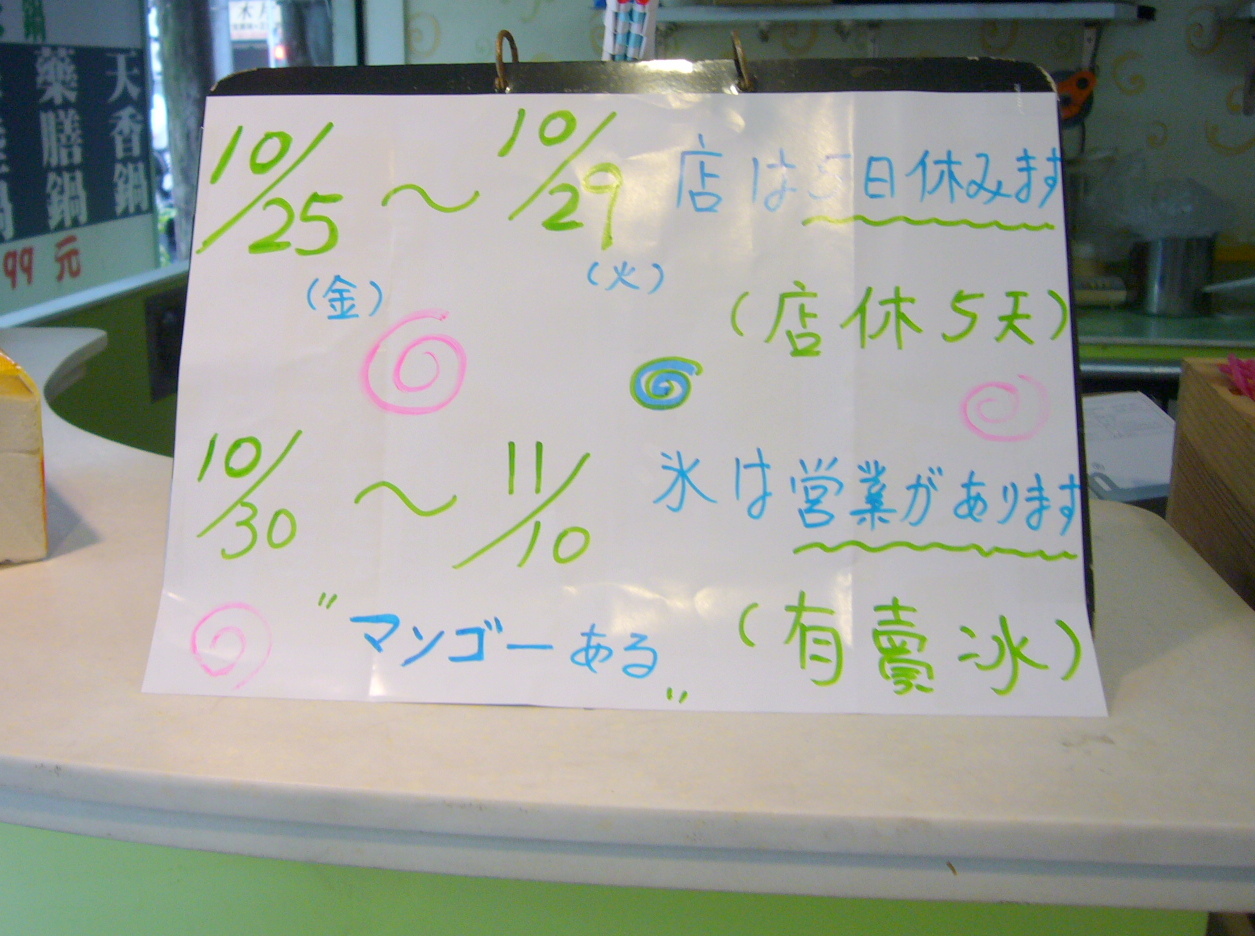 10/25 ～ 10/29 店は5日休みます
(金) (火)
(店休5天)
10/30 ～ 11/10 氷は営業があります
"マンゴーある" (有賣冰)
天香鍋
藥膳鍋
99元